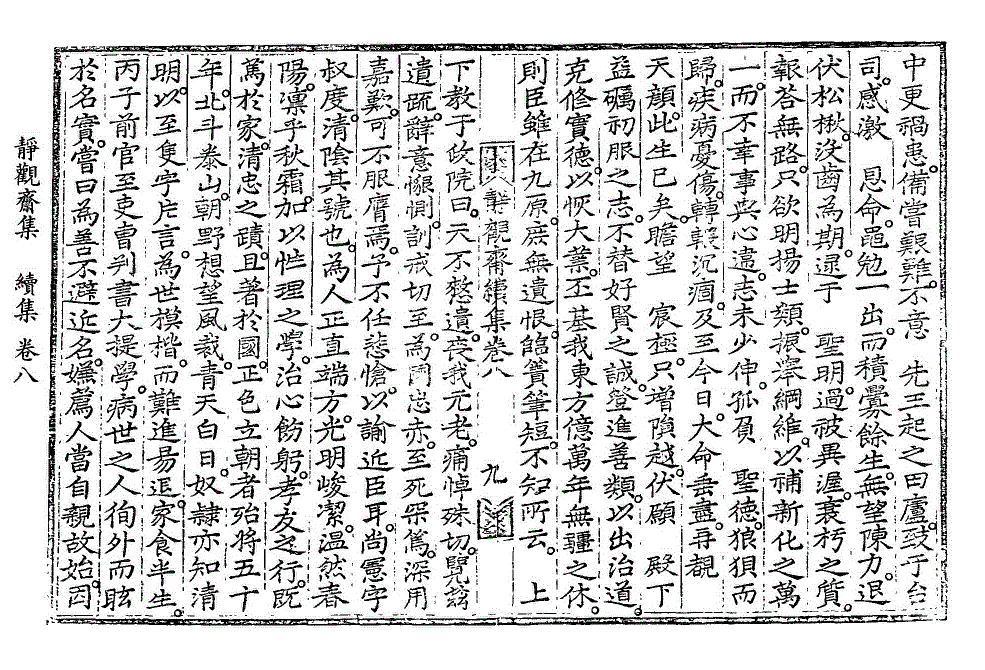 中更禍患。備嘗艱難。不意 先王起之田廬。致于台
司。感激 恩命。黽勉一出。而積釁餘生。無望陳力。退
伏松楸。沒齒為期。逮于 聖明。過被異渥。衰朽之質。
報答無路。只欲明揚士類。振滓綱維。以補新化之萬
一。而不幸事與心違。志未少伸。孤負 聖德。狼狽而
歸。疾病憂傷。轉輾沉痼。及至今日。大命垂盡。再覩
天顔。此生已矣。瞻望 宸極。只增隕越。伏願 殿下
益礪初服之志。不替好賢之誠。登進善類。以出治道。
克修實德。以恢大業。丕基我東方億萬年無疆之休。
則臣雖在九原。庶無遺恨。臨簀筆短。不知所云。 上
靜觀齋續集卷八 九
下教于政院曰。天不憖遺。喪我元老。痛悼殊切。覽玆
遺疏。辭意懇惻。訓戒切至。為國忠赤。至死罙篤。深用
嘉歎。可不服膺焉。予不任悲愴。以諭近臣耳。尚憲字
叔度。清陰其號也。為人正直端方。光明峻潔。溫然春
陽。凛乎秋霜。加以性理之學。治心飭躬。孝友之行。旣
篤於家。清忠之蹟。且著於國。正色立朝者殆將五十
年。北斗泰山。朝野想望風裁。青天白日。奴隷亦知清
明。以至隻字片言。為世模楷。而難進易退。家食半生。
丙子前官至吏曹判書大提學。病世之人徇外而眩
於名實。嘗曰為善不避近名。嫵薦人當自親故始。因
靜觀齋集 續集 卷八